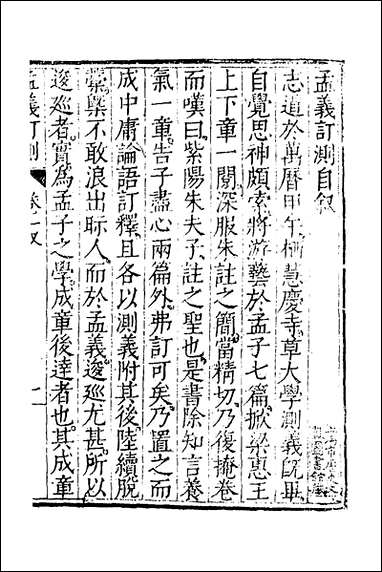 孟義訂測自叙
志道於萬曆甲午栖慧慶寺草大學測義旣畢
自覺思神頗索將游藝於孟子七篇掀梁惠王
上下章一閱深服朱註之簡當精切乃復掩卷
而嘆曰紫陽朱夫子註之聖也是書除知言養
氣一章告子盡心兩篇外弗訂可矣乃置之而
成中庸論語訂釋且各以測義附其後陸續脫
藁槩不敢浪出眎人而於孟義逡巡尤甚所以
逡巡者實為孟子之學成童後達者也其成童
孟義訂測 叙 一